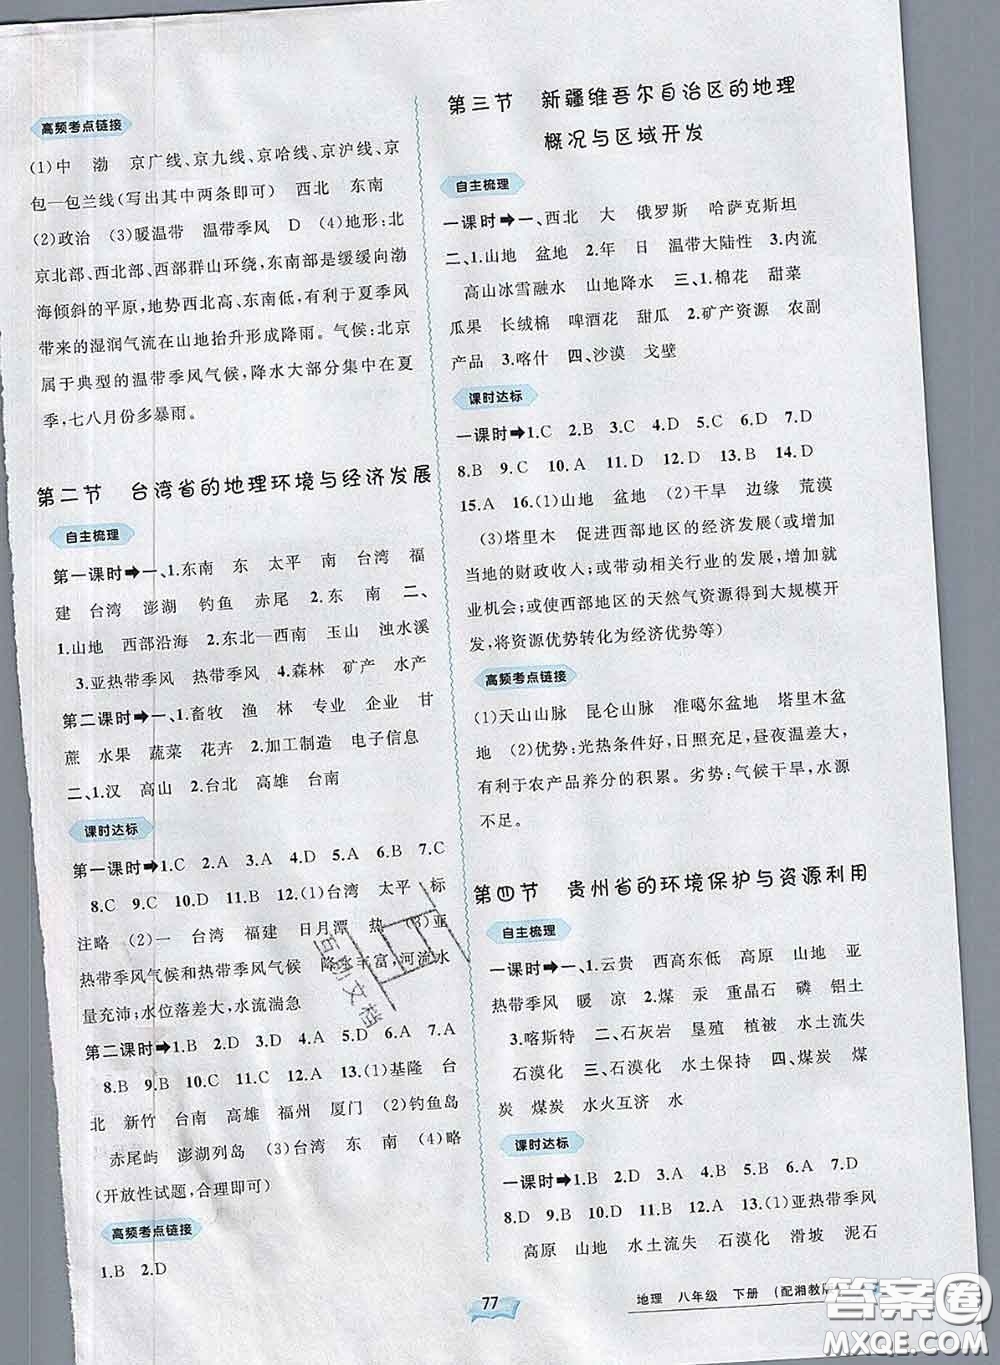 高频考点链接
(1)中 渤 京广线、京九线、京哈线、京沪线、京
包—包兰线(写出其中两条即可) 西北 东南
(2)政治 (3)暖温带 温带季风 D (4)地形:北
京北部、西北部、西部群山环绕,东南部是缓缓向渤
海倾斜的平原,地势西北高、东南低,有利于夏季风
带来的湿润气流在山地抬升形成降雨。气候:北京
属于典型的温带季风气候,降水大部分集中在夏
季,七八月份多暴雨。
第二节 台湾省的地理环境与经济发展
自主梳理
第一课时➔一、1.东南 东 太平 南 台湾 福
建 台湾 澎湖 钓鱼 赤尾 2.东 南 二、
1.山地 西部沿海 2.东北—西南 玉山 浊水溪
3.亚热带季风 热带季风 4.森林 矿产 水产
第二课时➔一、1.畜牧 渔 林 专业 企业 甘
蔗 水果 蔬菜 花卉 2.加工制造 电子信息
二、1.汉 高山 2.台北 高雄 台南
课时达标
第一课时➔1.C 2.A 3.A 4.D 5.A 6.B 7.C
8.C 9.C 10.A 11.D 12.B 13.(1)台湾 太平 标
注略 (2)一 台湾 福建 日月潭 热 (3)亚
热带季风气候和热带季风气候 降水丰富,河流水
量充沛;水位落差大,水流湍急
第二课时➔1.B 2.D 3.D 4.D 5.D 6.D 7.A
8.B 9.B 10.C 11.B 12.A 13.(1)基隆 台
北 新竹 台南 高雄 福州 厦门 (2)钓鱼岛
赤尾屿 澎湖列岛 (3)台湾 东 南 (4)略
(开放性试题,合理即可)
高频考点链接
1.B 2.D
第三节 新疆维吾尔自治区的地理
概况与区域开发
自主梳理
一课时➔一、西北 大 俄罗斯 哈萨克斯坦
二、1.山地 盆地 2.年 日 温带大陆性 3.内流
高山冰雪融水 山地降水 三、1.棉花 甜菜
瓜果 长绒棉 啤酒花 甜瓜 2.矿产资源 农副
产品 3.喀什 四、沙漠 戈壁
课时达标
一课时➔1.C 2.B 3.C 4.D 5.C 6.D 7.D
8.B 9.C 10.A 11.D 12.D 13.B 14.D
15.A 16.(1)山地 盆地 (2)干旱 边缘 荒漠
(3)塔里木 促进西部地区的经济发展(或增加
当地的财政收入;或带动相关行业的发展,增加就
业机会;或使西部地区的天然气资源得到大规模开
发,将资源优势转化为经济优势等)
高频考点链接
(1)天山山脉 昆仑山脉 准噶尔盆地 塔里木盆
地 (2)优势:光热条件好,日照充足,昼夜温差大,
有利于农产品养分的积累。劣势:气候干旱,水源
不足。
第四节 贵州省的环境保护与资源利用
自主梳理
一课时➔一、1.云贵 西高东低 高原 山地 亚
热带季风 暖 凉 2.煤 汞 重晶石 磷 铝土
3.喀斯特 二、石灰岩 垦殖 植被 水土流失
石漠化 三、石漠化 水土保持 四、煤炭 煤
炭 煤炭 水火互济 水
课时达标
一课时➔1.B 2.D 3.A 4.B 5.A 6.A 7.D
8.D 9.B 10.D 11.A 12.D 13.(1)亚热带季风
高原 山地 水土流失 石漠化 滑坡 泥石
77
地理 八年级 下册 (配湘教版
互動文档
答案圈
MXQE.COM